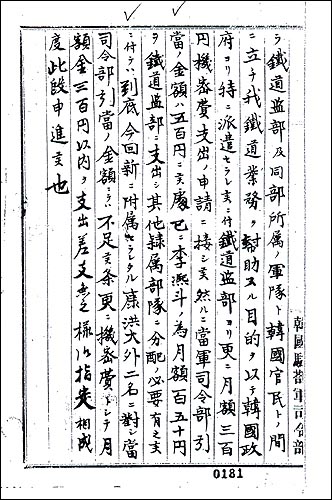 ラ鐵道監部及同部所属ノ軍隊ト韓國官民トノ間
ニ立チ我鐵道業務ヲ幇助スル目的ヲ以テ韓國政
府ヨリ特ニ派遣セラレ候ニ付鐵道監部ヨリ更ニ月額三百
円機密費支出ノ申請ニ接シ候然ルニ當軍司令部引
當ノ金額ハ五百円ニ候處已ニ李熈斗ノ為月額百五十円
ヲ鐵道監部ニ支出シ其他隷属部隊ニ分配ノ必要有之候
ニ付到底今回新ニ附属セラレタル康洪大外二名ニ對シ當
司令部引當ノ金額ニテハ不足候条更ニ機密費トシテ月
額金三百円以内ヲ支出差支無之様御指令相成
度此段申進候也
韓國駐箚軍司令部
0181